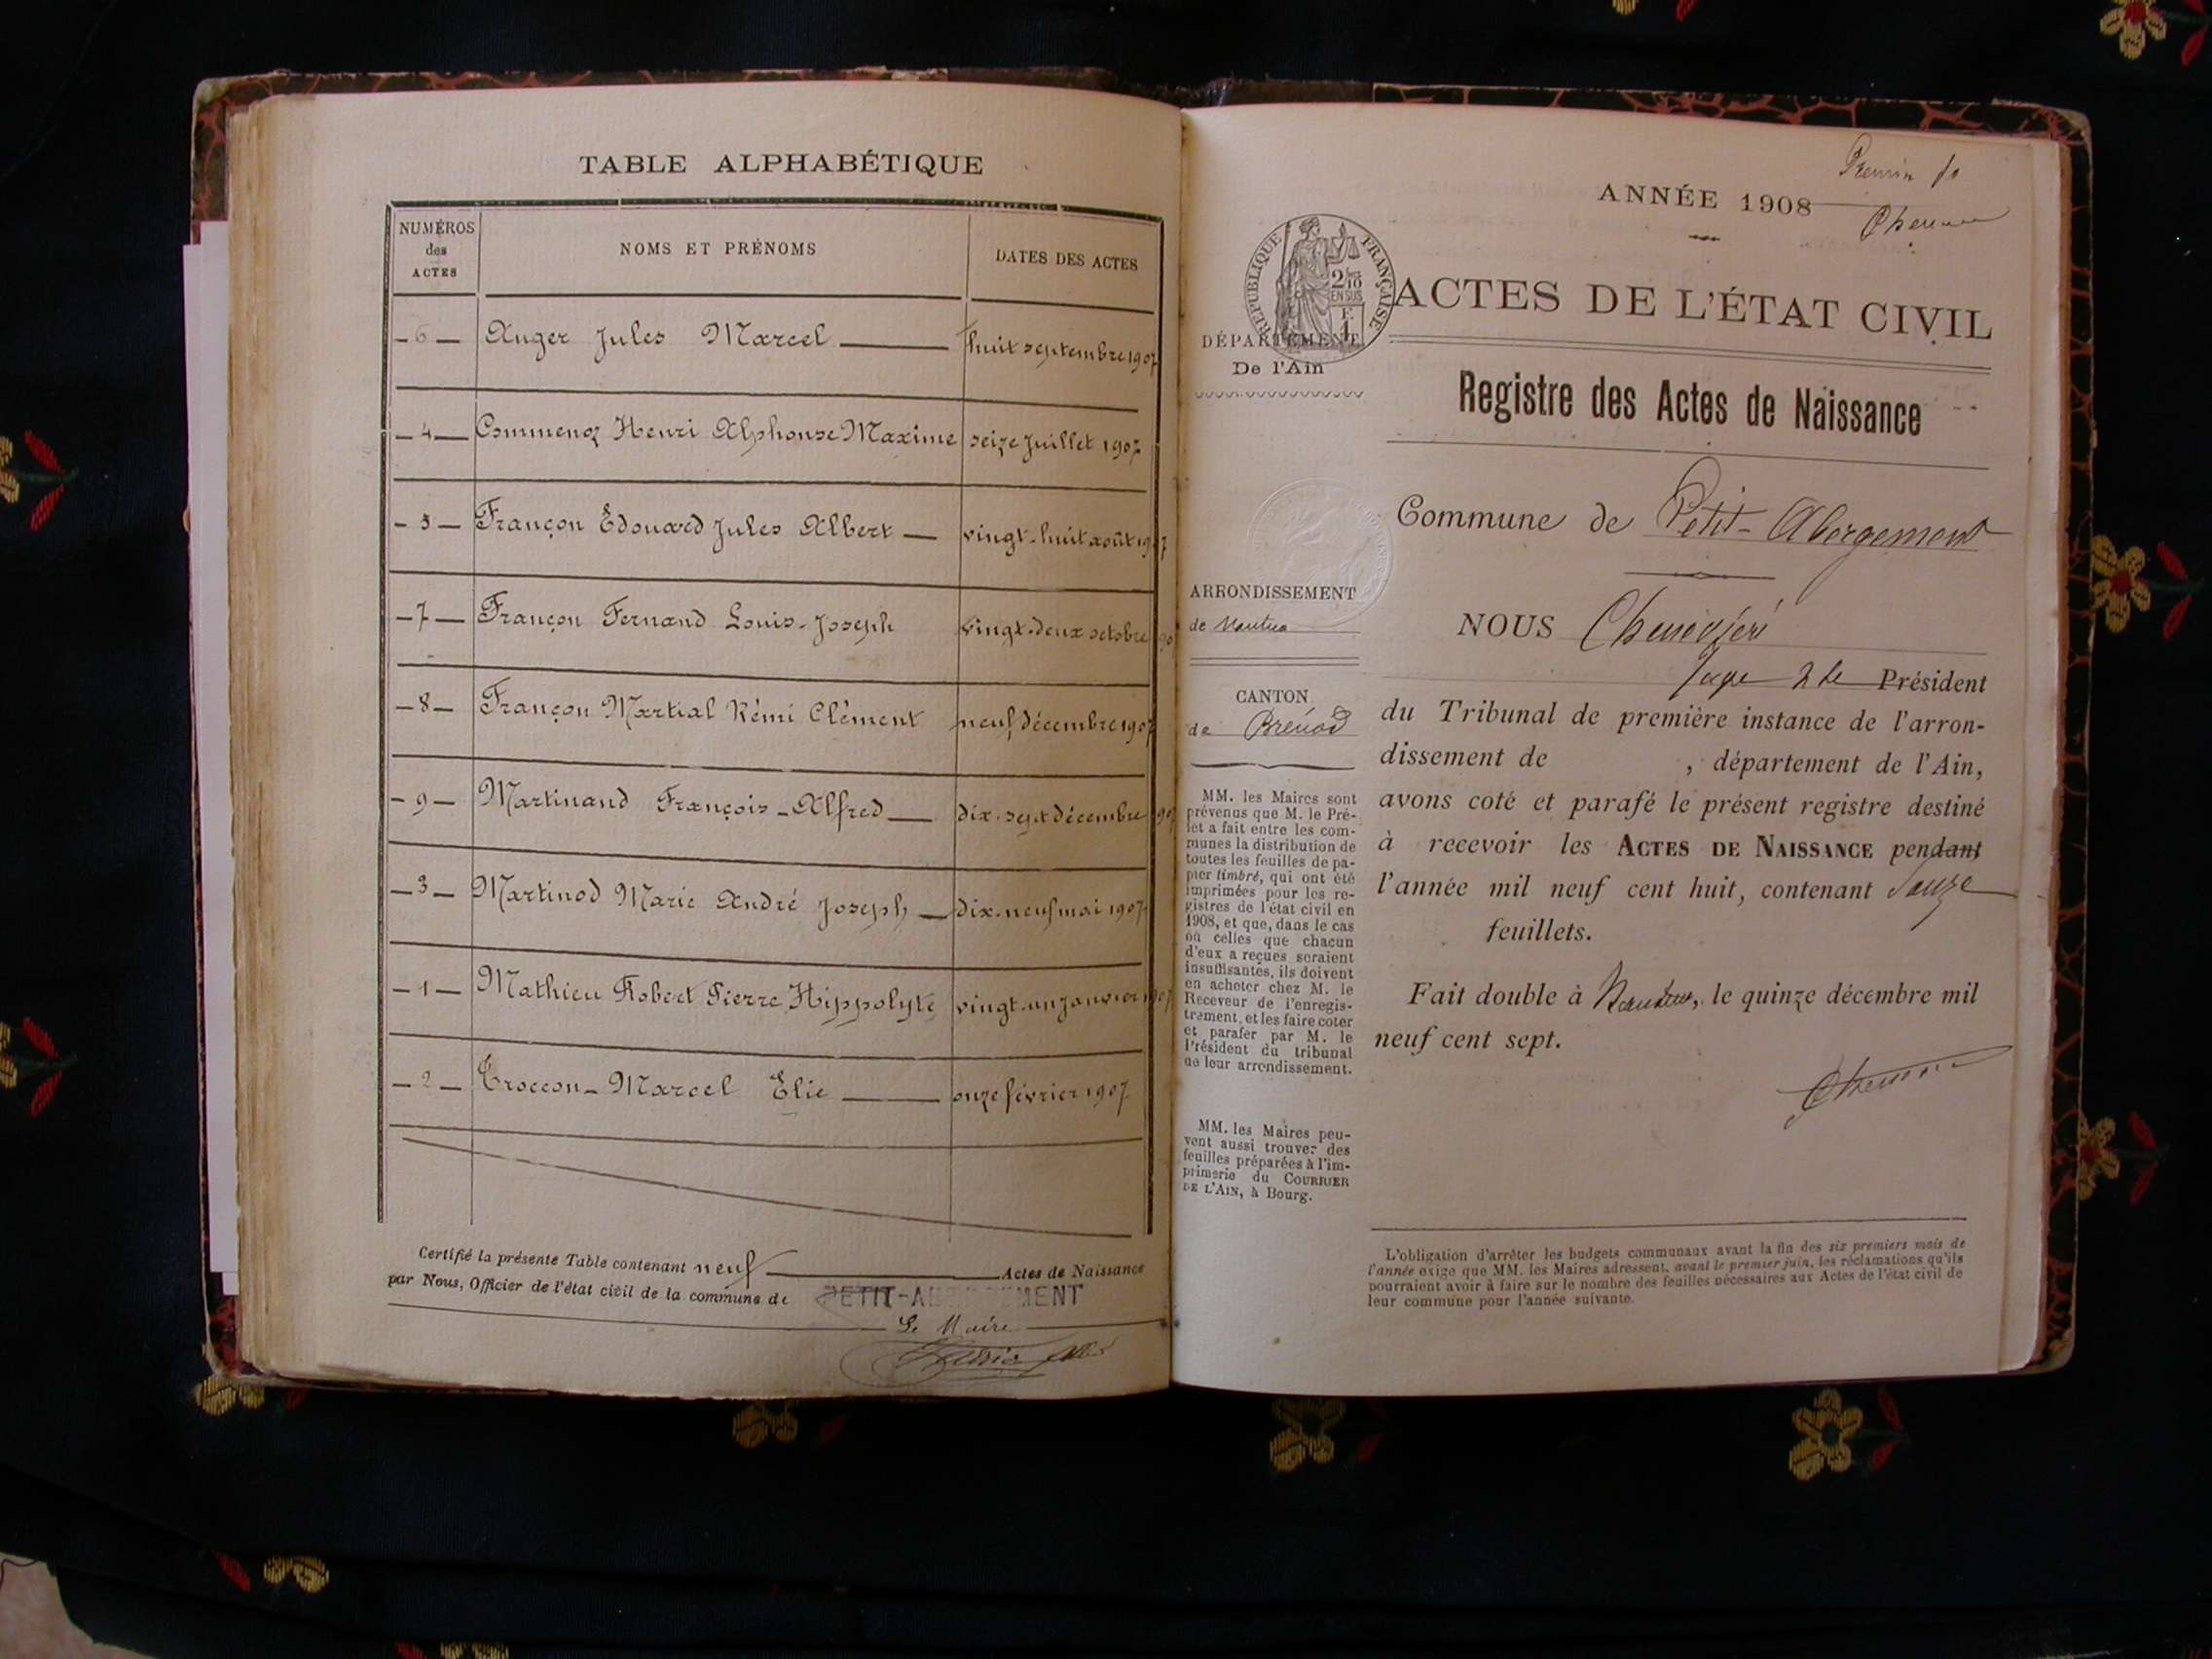 TABLE ALPHABÉTIQUE
NUMÉROS des ACTES
NOMS ET PRÉNOMS
DATES DES ACTES
- 6 - Auger Jules Marcel huit septembre 1907
- 4 - Commenoz Henri Alphonse Maxime seize juillet 1907
- 5 - Françon Edouard Jules Albert vingt-huit août 1907
- 7 - Françon Fernand Louis-Joseph vingt-deux octobre 190
- 8 - Françon Martial Rémi Clément neuf décembre 1907
- 9 - Martinand François-Alfred dix-sept décembre 1907
- 3 - Martinod Marie André Joseph dix-neuf mai 1907
- 1 - Mathieu Robert Pierre Hippolyte vingt-un janvier 1907
- 2 - Troccon-Marcel Elie onze février 1907
Certifié la présente Table contenant neuf Actes de Naissance
par Nous, Officier de l'état civil de la commune de PETIT-ABERGEMENT
Le Maire
ANNÉE 1908
RÉPUBLIQUE FRANÇAISE
2/10 EN SUS
F. 1
ACTES DE L'ÉTAT CIVIL
DÉPARTEMENT
De l'Ain
Registre des Actes de Naissance
Commune de Petit-Abergement
ARRONDISSEMENT
de Nantua
NOUS
Juge Président
CANTON
de Brénod
du Tribunal de première instance de l'arron-
dissement de , département de l'Ain,
avons coté et parafé le présent registre destiné
à recevoir les ACTES DE NAISSANCE pendant
l'année mil neuf cent huit, contenant douze
feuillets.
Fait double à Nantua, le quinze décembre mil
neuf cent sept.
MM. les Maires sont
prévenus que M. le Pré-
fet a fait entre les com-
munes la distribution de
toutes les feuilles de pa-
pier timbré, qui ont été
imprimées pour les re-
gistres de l'état civil en
1908, et que, dans le cas
où celles que chacun
d'eux a reçues seraient
insuffisantes, ils doivent
en acheter chez M. le
Receveur de l'enregis-
trement, et les faire coter
et parafer par M. le
Président du tribunal
de leur arrondissement.
MM. les Maires peu-
vent aussi trouver des
feuilles préparées à l'im-
primerie du COURRIER
DE L'AIN, à Bourg.
L'obligation d'arrêter les budgets communaux avant la fin des six premiers mois de
l'année exige que MM. les Maires adressent, avant le premier juin, les réclamations qu'ils
pourraient avoir à faire sur le nombre des feuilles nécessaires aux Actes de l'état civil de
leur commune pour l'année suivante.